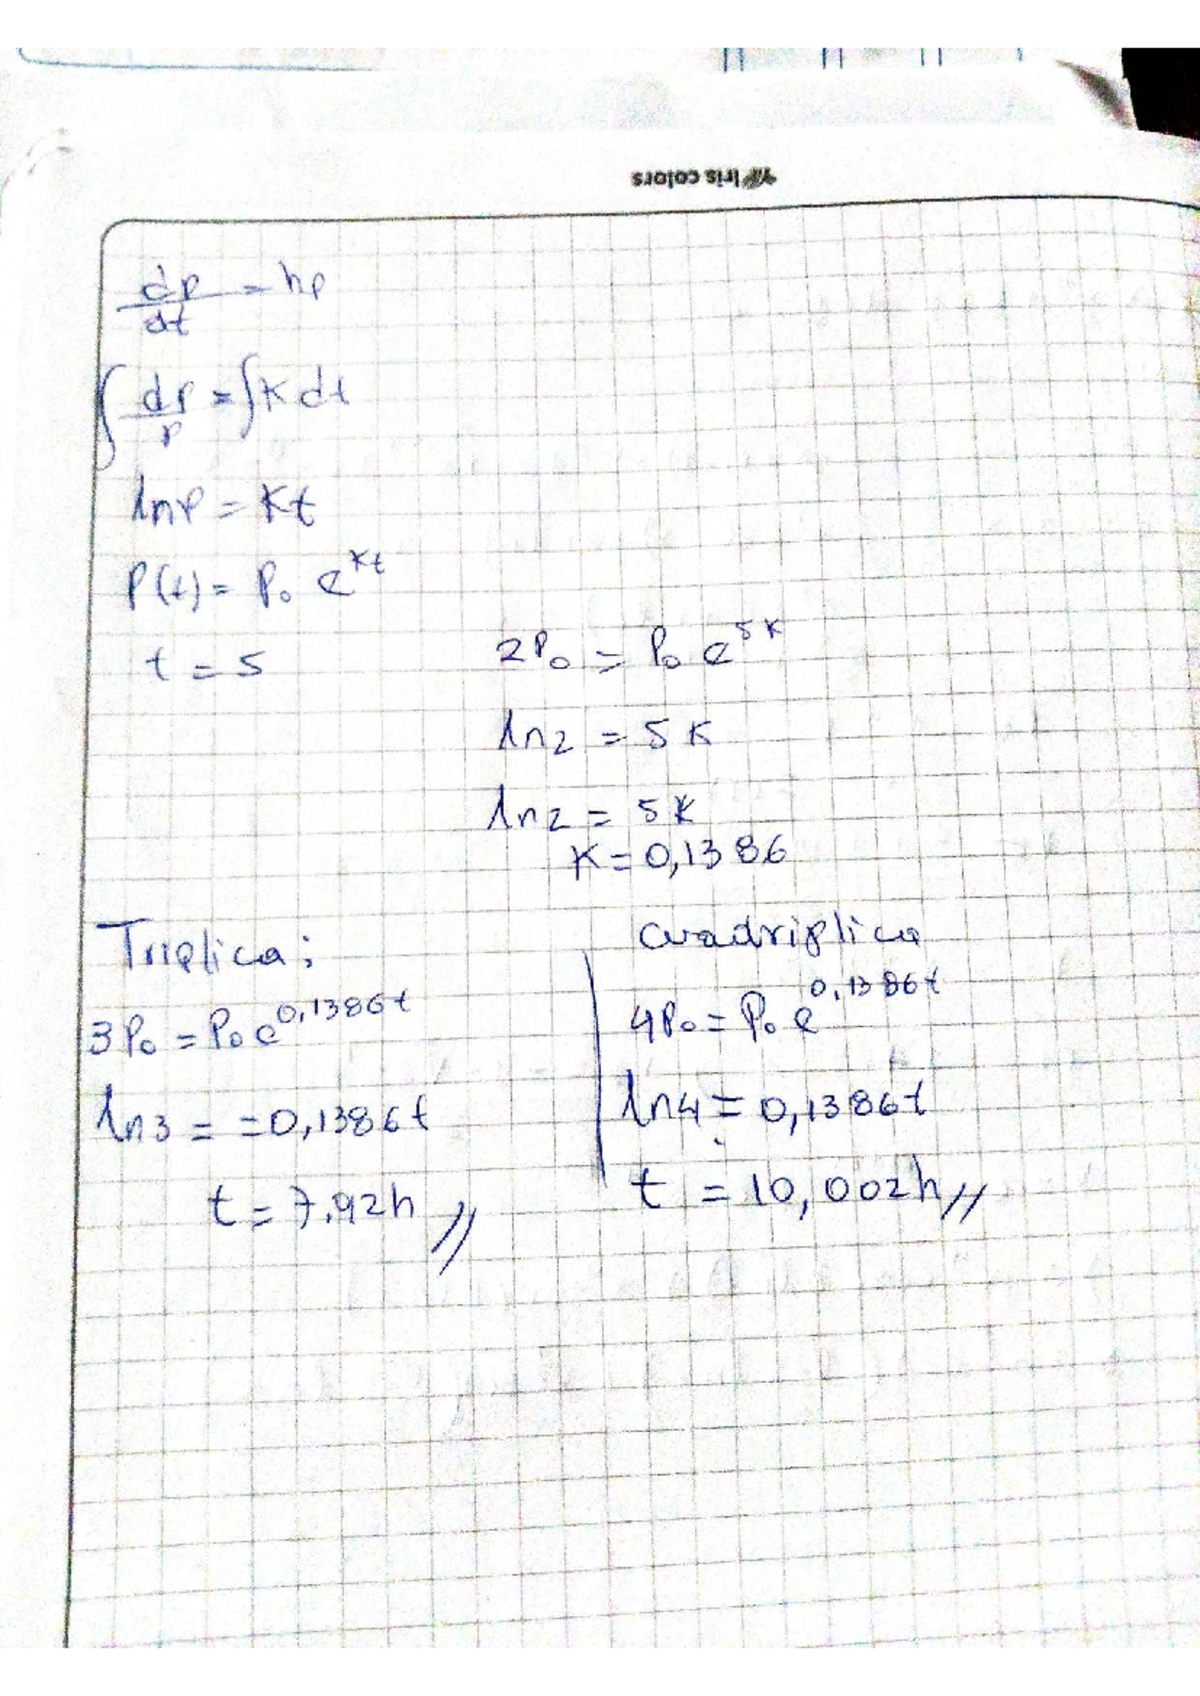 Iris colors
dp/dt = kp
∫ dp/p = ∫ K dt
lnP = Kt
P(t) = P₀ e^Kt
t = 5
2P₀ = P₀ e^5K
ln2 = 5K
ln2 = 5K
K = 0,1386
Triplica;
3P₀ = P₀ e^0,1386t
ln3 = = 0,1386t
t = 7.92h //
cuadriplica
4P₀ = P₀ e^0,1386t
ln4 = 0,1386t
t = 10,002h //